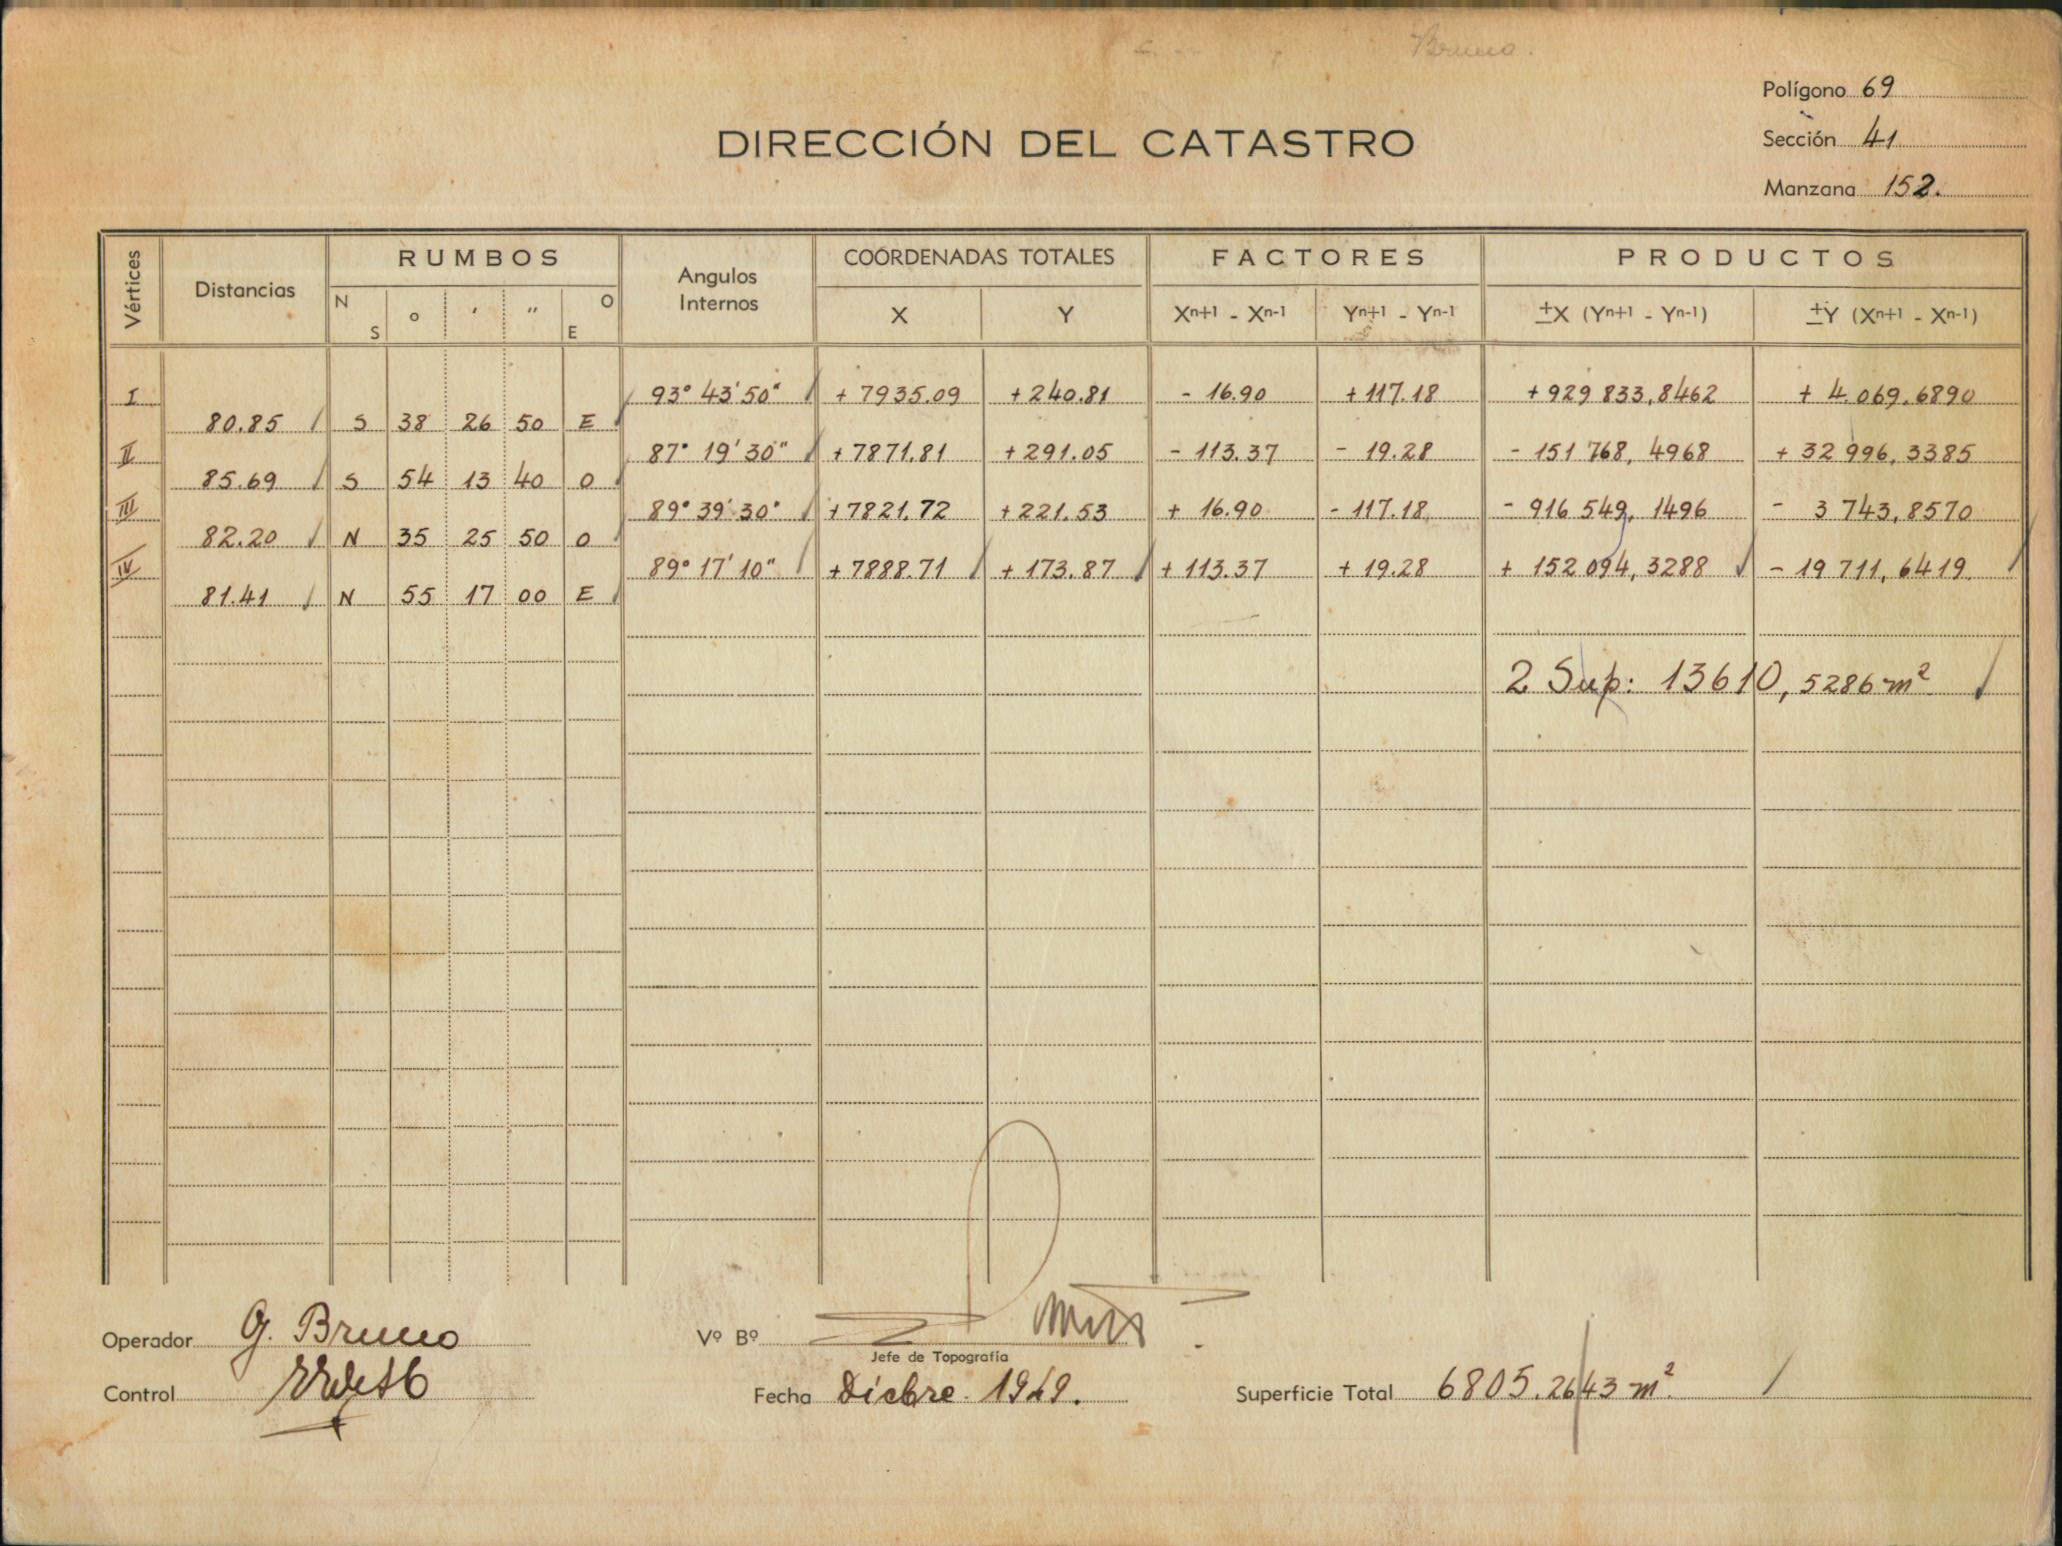 Bruno.
Polígono 69
DIRECCIÓN DEL CATASTRO
Sección 41
Manzana 152.
Vértices Distancias RUMBOS Angulos Internos COORDENADAS TOTALES FACTORES PRODUCTOS
N S ° ' " O E X Y Xn+1 - Xn-1 Yn+1 - Yn-1 ±X (Yn+1 - Yn-1) ±Y (Xn+1 - Xn-1)
I 93° 43' 50" + 7935.09 + 240.81 - 16.90 + 117.18 + 929 833,8462 + 4.069.6890
80.85 S 38 26 50 E
II 87° 19' 30" + 7871.81 + 291.05 - 113.37 - 19.28 - 151 768, 4968 + 32 996, 3385
85.69 S 54 13 40 O
III 89° 39' 30" + 7821.72 + 221.53 + 16.90 - 117.18 - 916 549, 1496 - 3 743,8570
82.20 N 35 25 50 O
IV 89° 17' 10" + 7888.71 + 173.87 + 113.37 + 19.28 + 152 094, 3288 - 19 711, 6419
81.41 N 55 17 00 E
2 Sup: 13610, 5286 m²
Operador G. Bruno Vº Bº
Jefe de Topografía
Control Fecha Dicbre. 1949. Superficie Total 6805.2643 m²